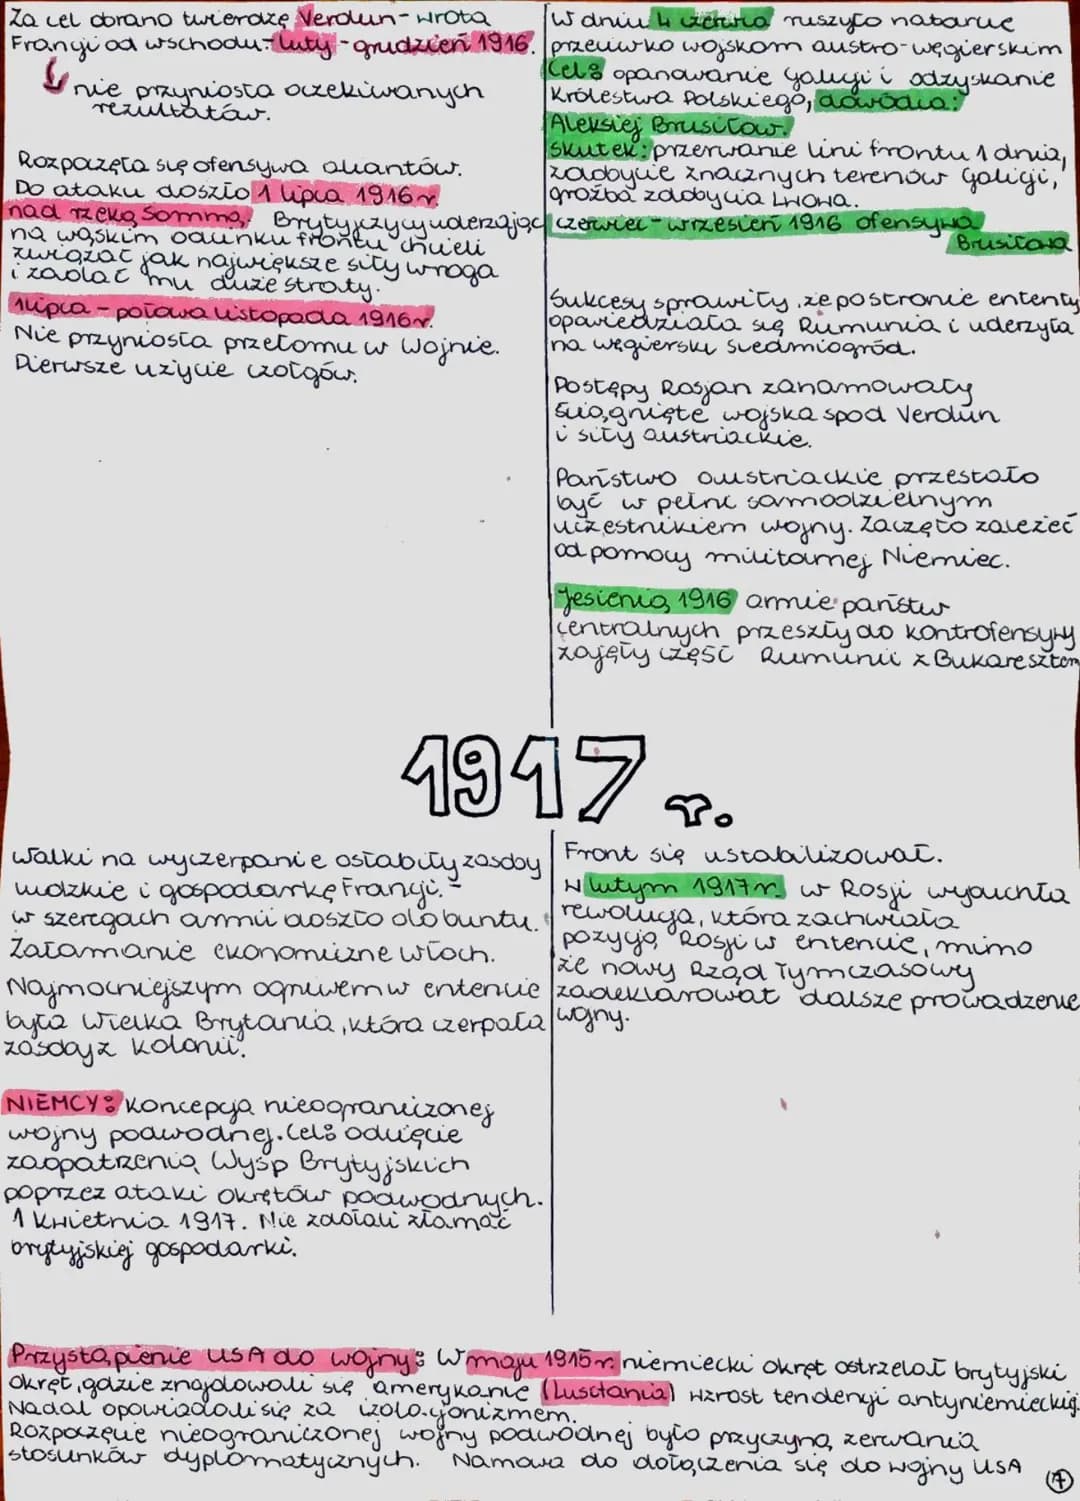 Za cel obrano twierdzę Verdun - wrota
Francji od wschodu. luty - grudzień 1916.
nie przyniosła oczekiwanych
rezultatów.
Rozpoczęła się ofensywa aliantów.
Do ataku doszło 1 lipca 1916 r.
nad rzeką Sommą. Brytyjczycy uderzając
na wąskim odcinku frontu chcieli
związać jak największe siły wroga
i zadać mu duże straty.
1 lipca - połowa listopada 1916 r.
Nie przyniosła przełomu w wojnie.
Pierwsze użycie czołgów.
W dniu 4 czerwca ruszyło natarcie
przeciwko wojskom austro-węgierskim
Cel: opanowanie Galicji i odzyskanie
Królestwa Polskiego, dowódca:
Aleksiej Brusiłow.
skutek: przerwanie lini frontu 1 dnia,
zdobycie znacznych terenów Galicji,
groźba zdobycia Lwowa.
czerwiec - wrzesień 1916 ofensywa
Brusiłowa
Sukcesy sprawiły, że po stronie ententy
opowiedziała się Rumunia i uderzyła
na węgierski Siedmiogród.
Postępy Rosjan zahamowały
ściągnięte wojska spod Verdun
i siły austriackie.
Państwo austriackie przestało
być w pełni samodzielnym
uczestnikiem wojny. Zaczęło zależeć
od pomocy militarnej Niemiec.
Jesienią 1916 armie państw
centralnych przeszły do kontrofensywy
zajęły część Rumunii z Bukaresztem
1917 r.
Walki na wyczerpanie osłabiły zasoby
ludzkie i gospodarkę Francji. -
w szeregach armii doszło do buntu.
Załamanie ekonomiczne Włoch.
Najmocniejszym ogniwem w entencie
była Wielka Brytania, która czerpała
zasoby z kolonii.
NIEMCY: Koncepcja nieograniczonej
wojny podwodnej. Cel: odcięcie
zaopatrzenia Wysp Brytyjskich
poprzez ataki okrętów podwodnych.
1 kwietnia 1917. Nie zdołali złamać
brytyjskiej gospodarki.
Front się ustabilizował.
W lutym 1917 r. w Rosji wybuchła
rewolucja, która zachwiała
pozycją Rosji w entencie, mimo
że nowy Rząd Tymczasowy
zadeklarował dalsze prowadzenie
wojny.
Przystąpienie USA do wojny: W maju 1915 r. niemiecki okręt ostrzelał brytyjski
okręt, gdzie znajdowali się amerykanie (Lusitania) wzrost tendencji antyniemieckiej.
Nadal opowiadali się za izolacjonizmem.
Rozpoczęcie nieograniczonej wojny podwodnej było przyczyną zerwania
stosunków dyplomatycznych. Namowa do dołączenia się do wojny USA